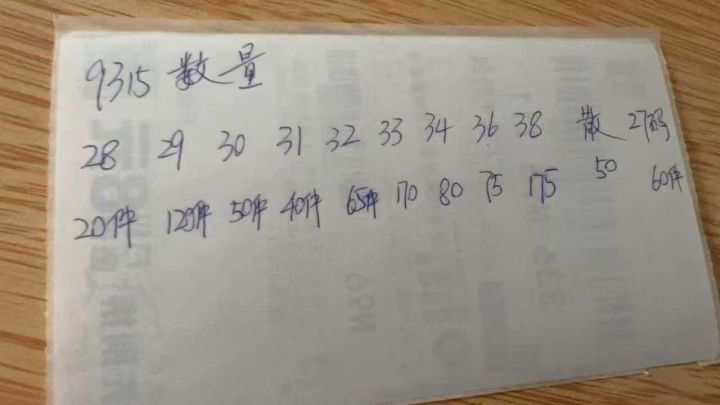 9315 数量
28 29 30 31 32 33 34 36 38 散 27码
20件 120件 50件 40件 65件 170 80 75 175 50 60件